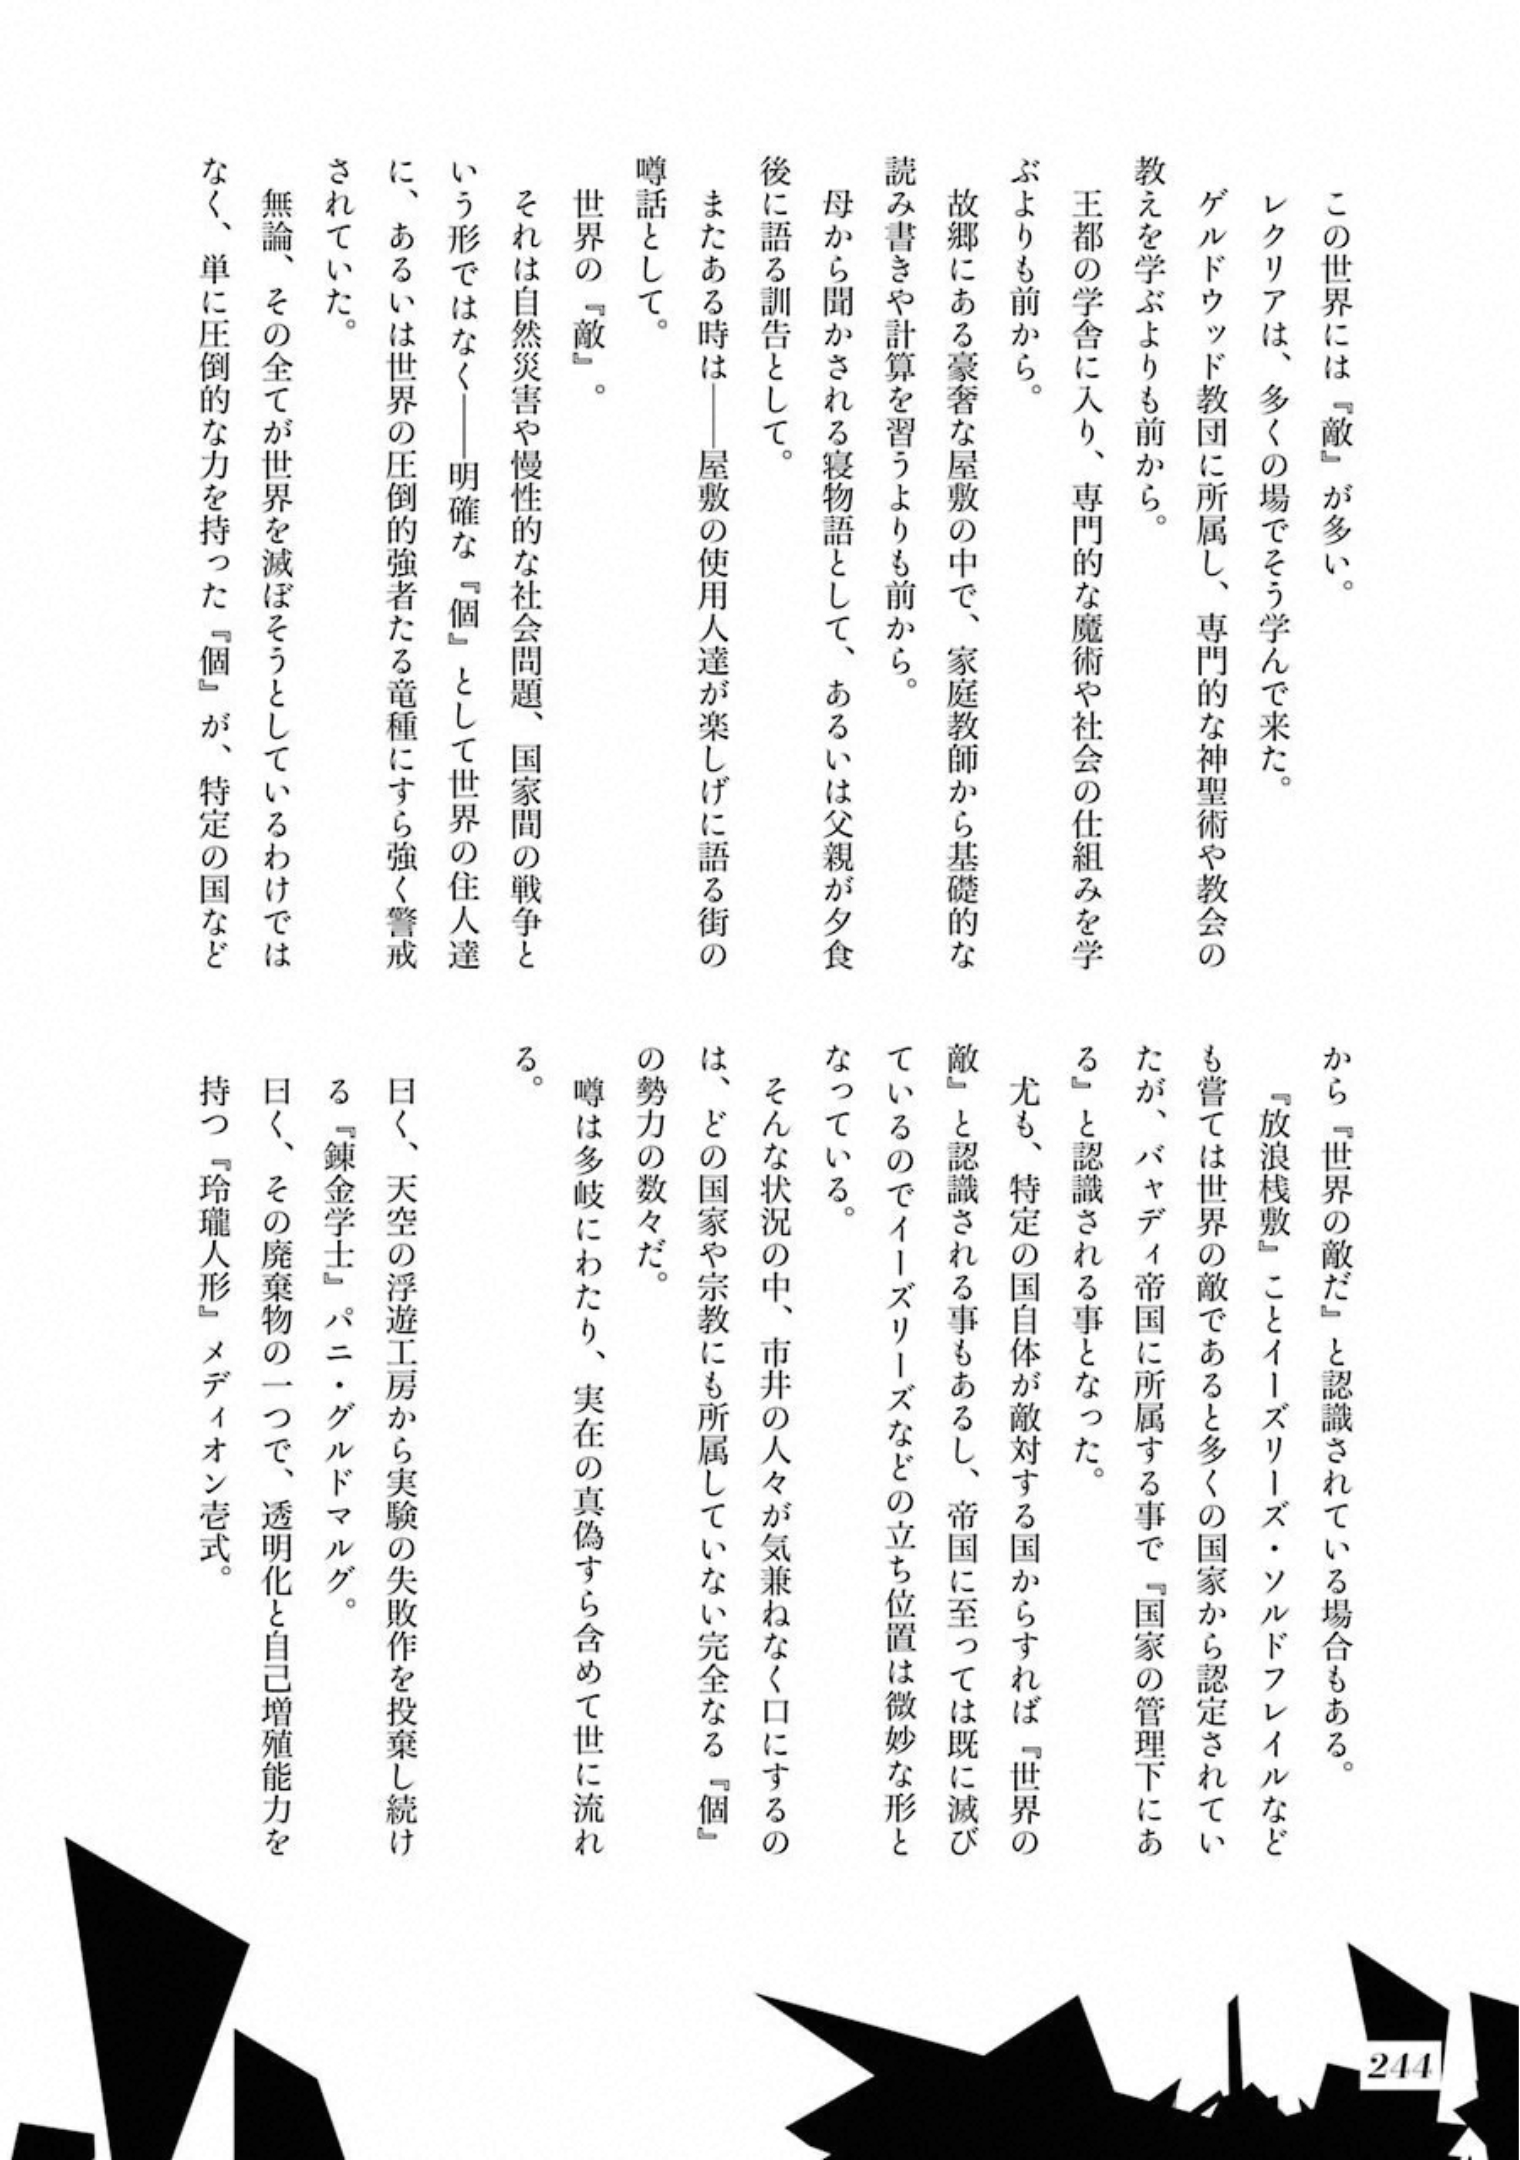 この世界には『敵』が多い。
　レクリアは、多くの場でそう学んで来た。
　ゲルドウッド教団に所属し、専門的な神聖術や教会の
教えを学ぶよりも前から。
　王都の学舎に入り、専門的な魔術や社会の仕組みを学
ぶよりも前から。
　故郷にある豪奢な屋敷の中で、家庭教師から基礎的な
読み書きや計算を習うよりも前から。
　母から聞かされる寝物語として、あるいは父親が夕食
後に語る訓告として。
　またある時は――屋敷の使用人達が楽しげに語る街の
噂話として。
　世界の『敵』。
　それは自然災害や慢性的な社会問題、国家間の戦争と
いう形ではなく――明確な『個』として世界の住人達
に、あるいは世界の圧倒的強者たる竜種にすら強く警戒
されていた。
　無論、その全てが世界を滅ぼそうとしているわけでは
なく、単に圧倒的な力を持った『個』が、特定の国など
から『世界の敵だ』と認識されている場合もある。
　『放浪桟敷』ことイーズリーズ・ソルドフレイルなど
も嘗ては世界の敵であると多くの国家から認定されてい
たが、バャディ帝国に所属する事で『国家の管理下にあ
る』と認識される事となった。
　尤も、特定の国自体が敵対する国からすれば『世界の
敵』と認識される事もあるし、帝国に至っては既に滅び
ているのでイーズリーズなどの立ち位置は微妙な形と
なっている。
　そんな状況の中、市井の人々が気兼ねなく口にするの
は、どの国家や宗教にも所属していない完全なる『個』
の勢力の数々だ。
　噂は多岐にわたり、実在の真偽すら含めて世に流れ
る。
　曰く、天空の浮遊工房から実験の失敗作を投棄し続け
　る『錬金学士』パニ・グルドマルグ。
　曰く、その廃棄物の一つで、透明化と自己増殖能力を
　持つ『玲瓏人形』メディオン壱式。
244